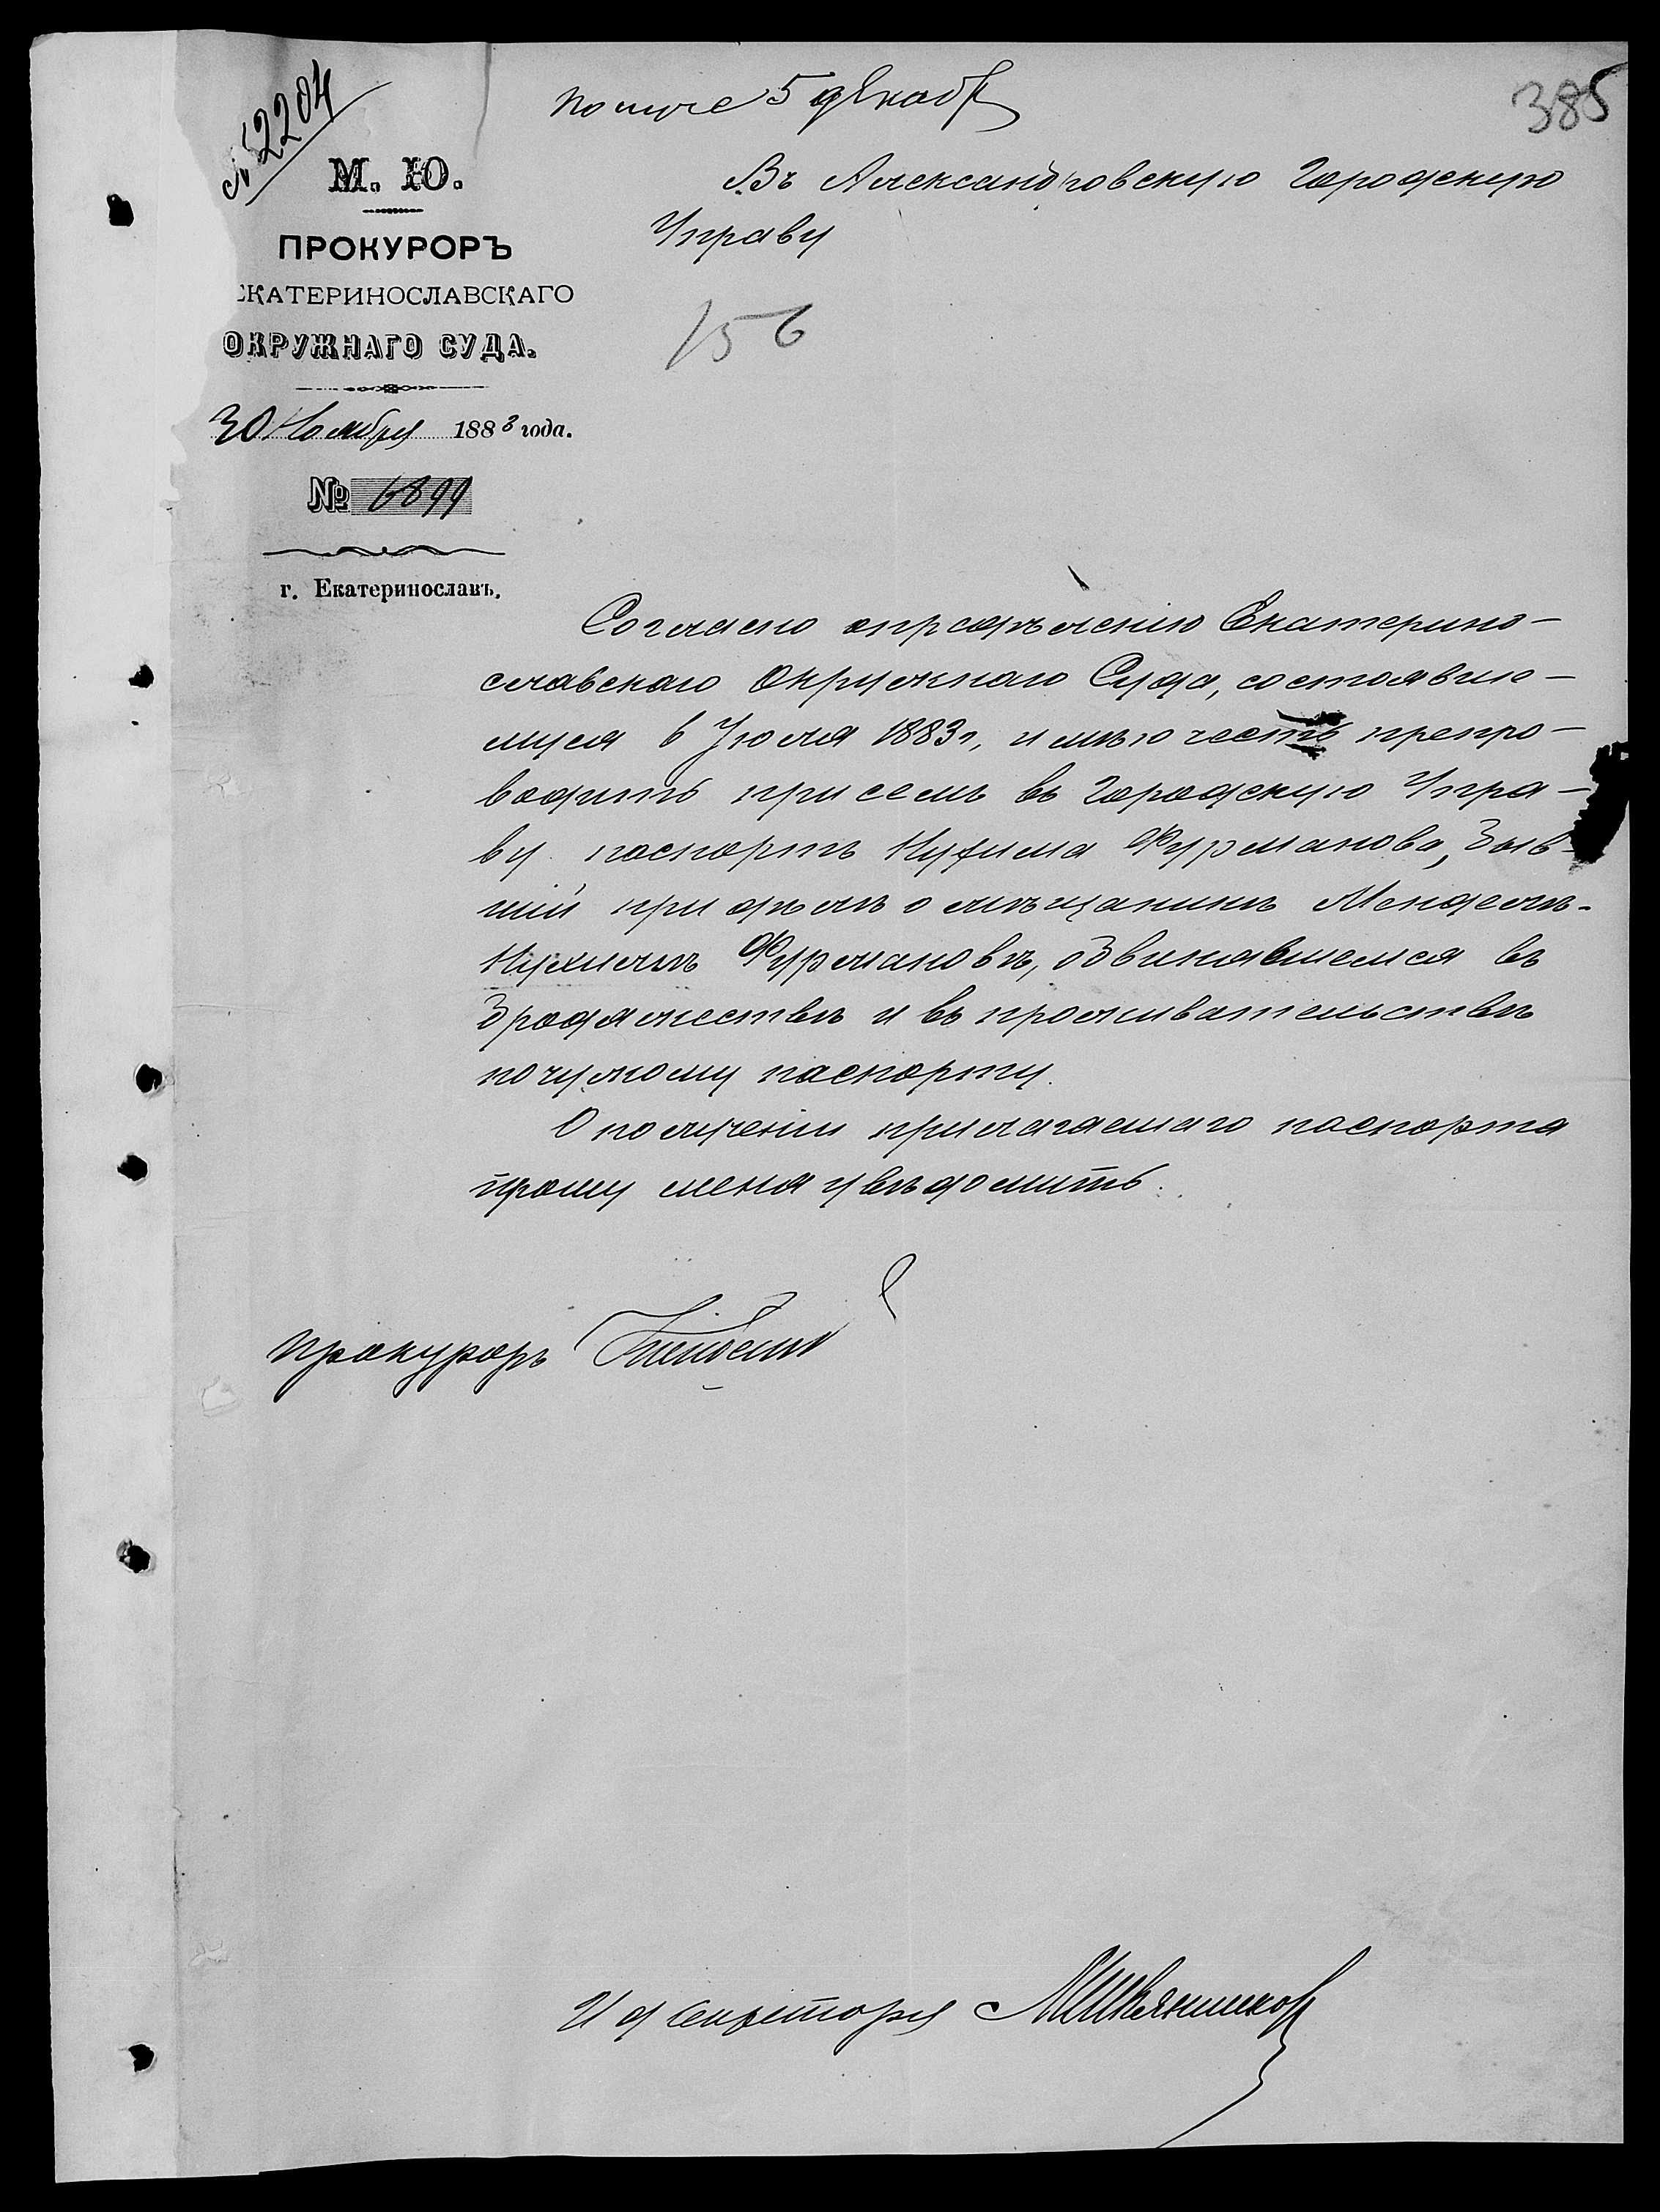 № 2204
получе 5 декаб
385
М. Ю.
ПРОКУРОРЪ
ЕКАТЕРИНОСЛАВСКАГО
ОКРУЖНАГО СУДА.
30 Ноября 1883 года.
№ 6899
г. Екатеринославъ.
Въ Александровскую Городскую
Управу
156
Согласно опредѣленію Екатерино-
славскаго Окружнаго Суда, состоявше-
муся 6 Іюля 1883 г., имѣю честь препро-
водить при семъ въ Городскую Упра-
ву паспортъ Нухима Фурманова, быв-
шій при дѣлѣ о мѣщанинѣ Менделѣ-
Нухимѣ Фурмановѣ, обвинявшемся въ
бродяжествѣ и въ проживательствѣ
по чужому паспорту.
О полученіи прилагаемаго паспорта
прошу меня увѣдомить.
Прокуроръ
И д секретаря